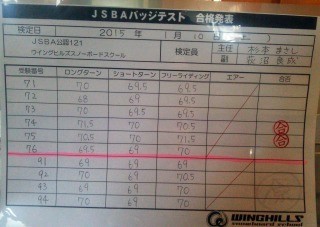 JSBAバッジテスト 合格発表
検定日 2015年 1月10日(土)
JSBA公認121
ウイングヒルズスノーボードスクール
検定員 主任 杉本 まさし
副
受験番号 ロングターン ショートターン フリーライディング エアー 合否
71 70 69.5 69.5
72 68 69 69.5
73 70 69.5 69.5
74 71.5 70 70.5 合
75 70.5 70 71.5 合
76 69.5 69 70
91 69 69 69
92 70 69 70.5
93 69 69 70
94 70 69 70
WINGHILLS
snowboard school